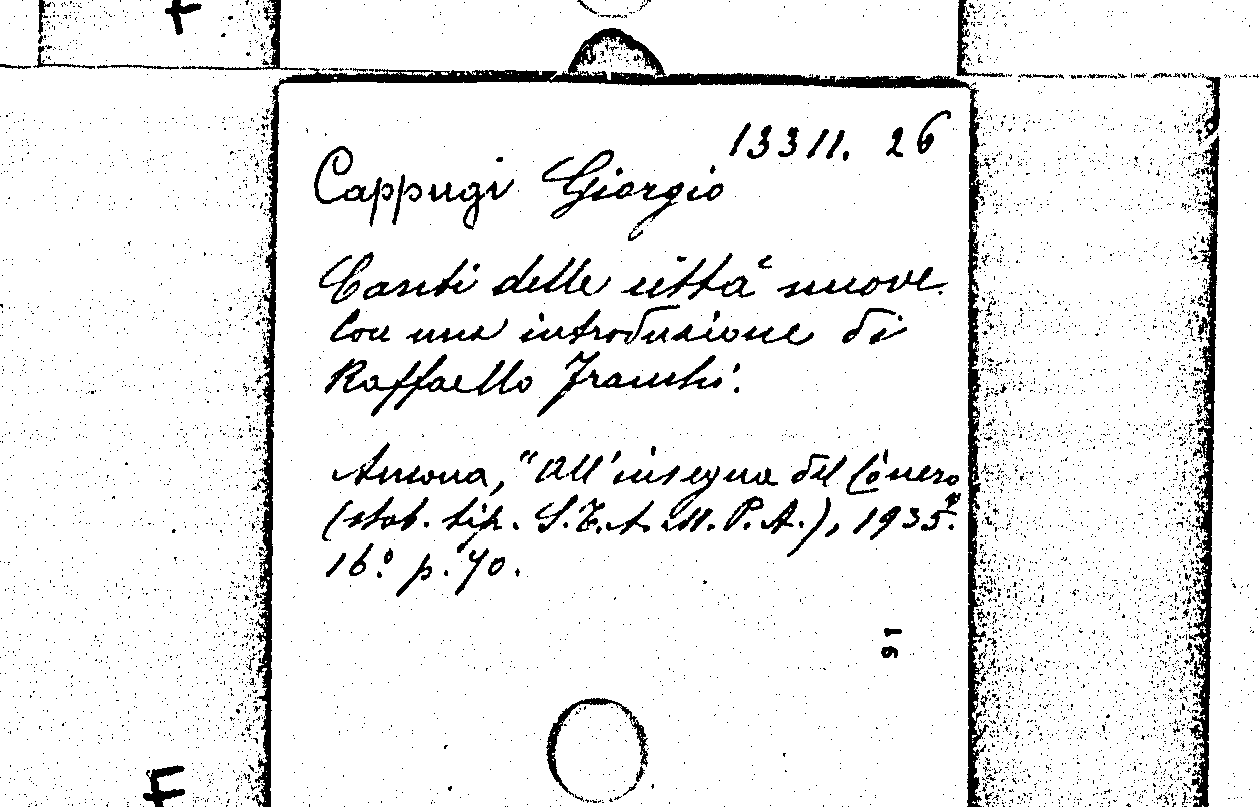 F
13311. 26
Cappugi Giorgio
Canti delle città nuove.
Con una introduzione di
Raffaello Franchi.
Ancona, "All'insegna del Cònero"
(stab. tip. S.T.A.M.P.A.), 1935.
16° p. 70.
91
F